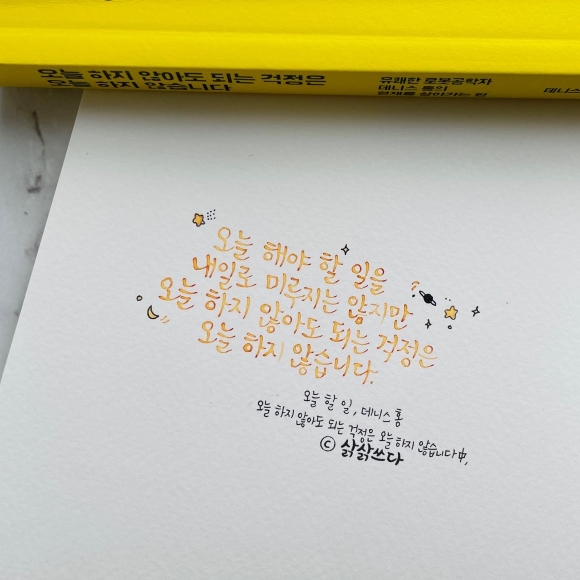 오늘 하지 않아도 되는 걱정은
오늘 하지 않습니다
유쾌한 로봇공학자
데니스 홍의
데니스
오늘 해야 할 일을
내일로 미루지는 않지만
오늘 하지 않아도 되는 걱정은
오늘 하지 않습니다.
오늘 할 일, 데니스 홍
오늘 하지 않아도 되는 걱정은 오늘 하지 않습니다 中,
ⓒ 삵삵쓰다